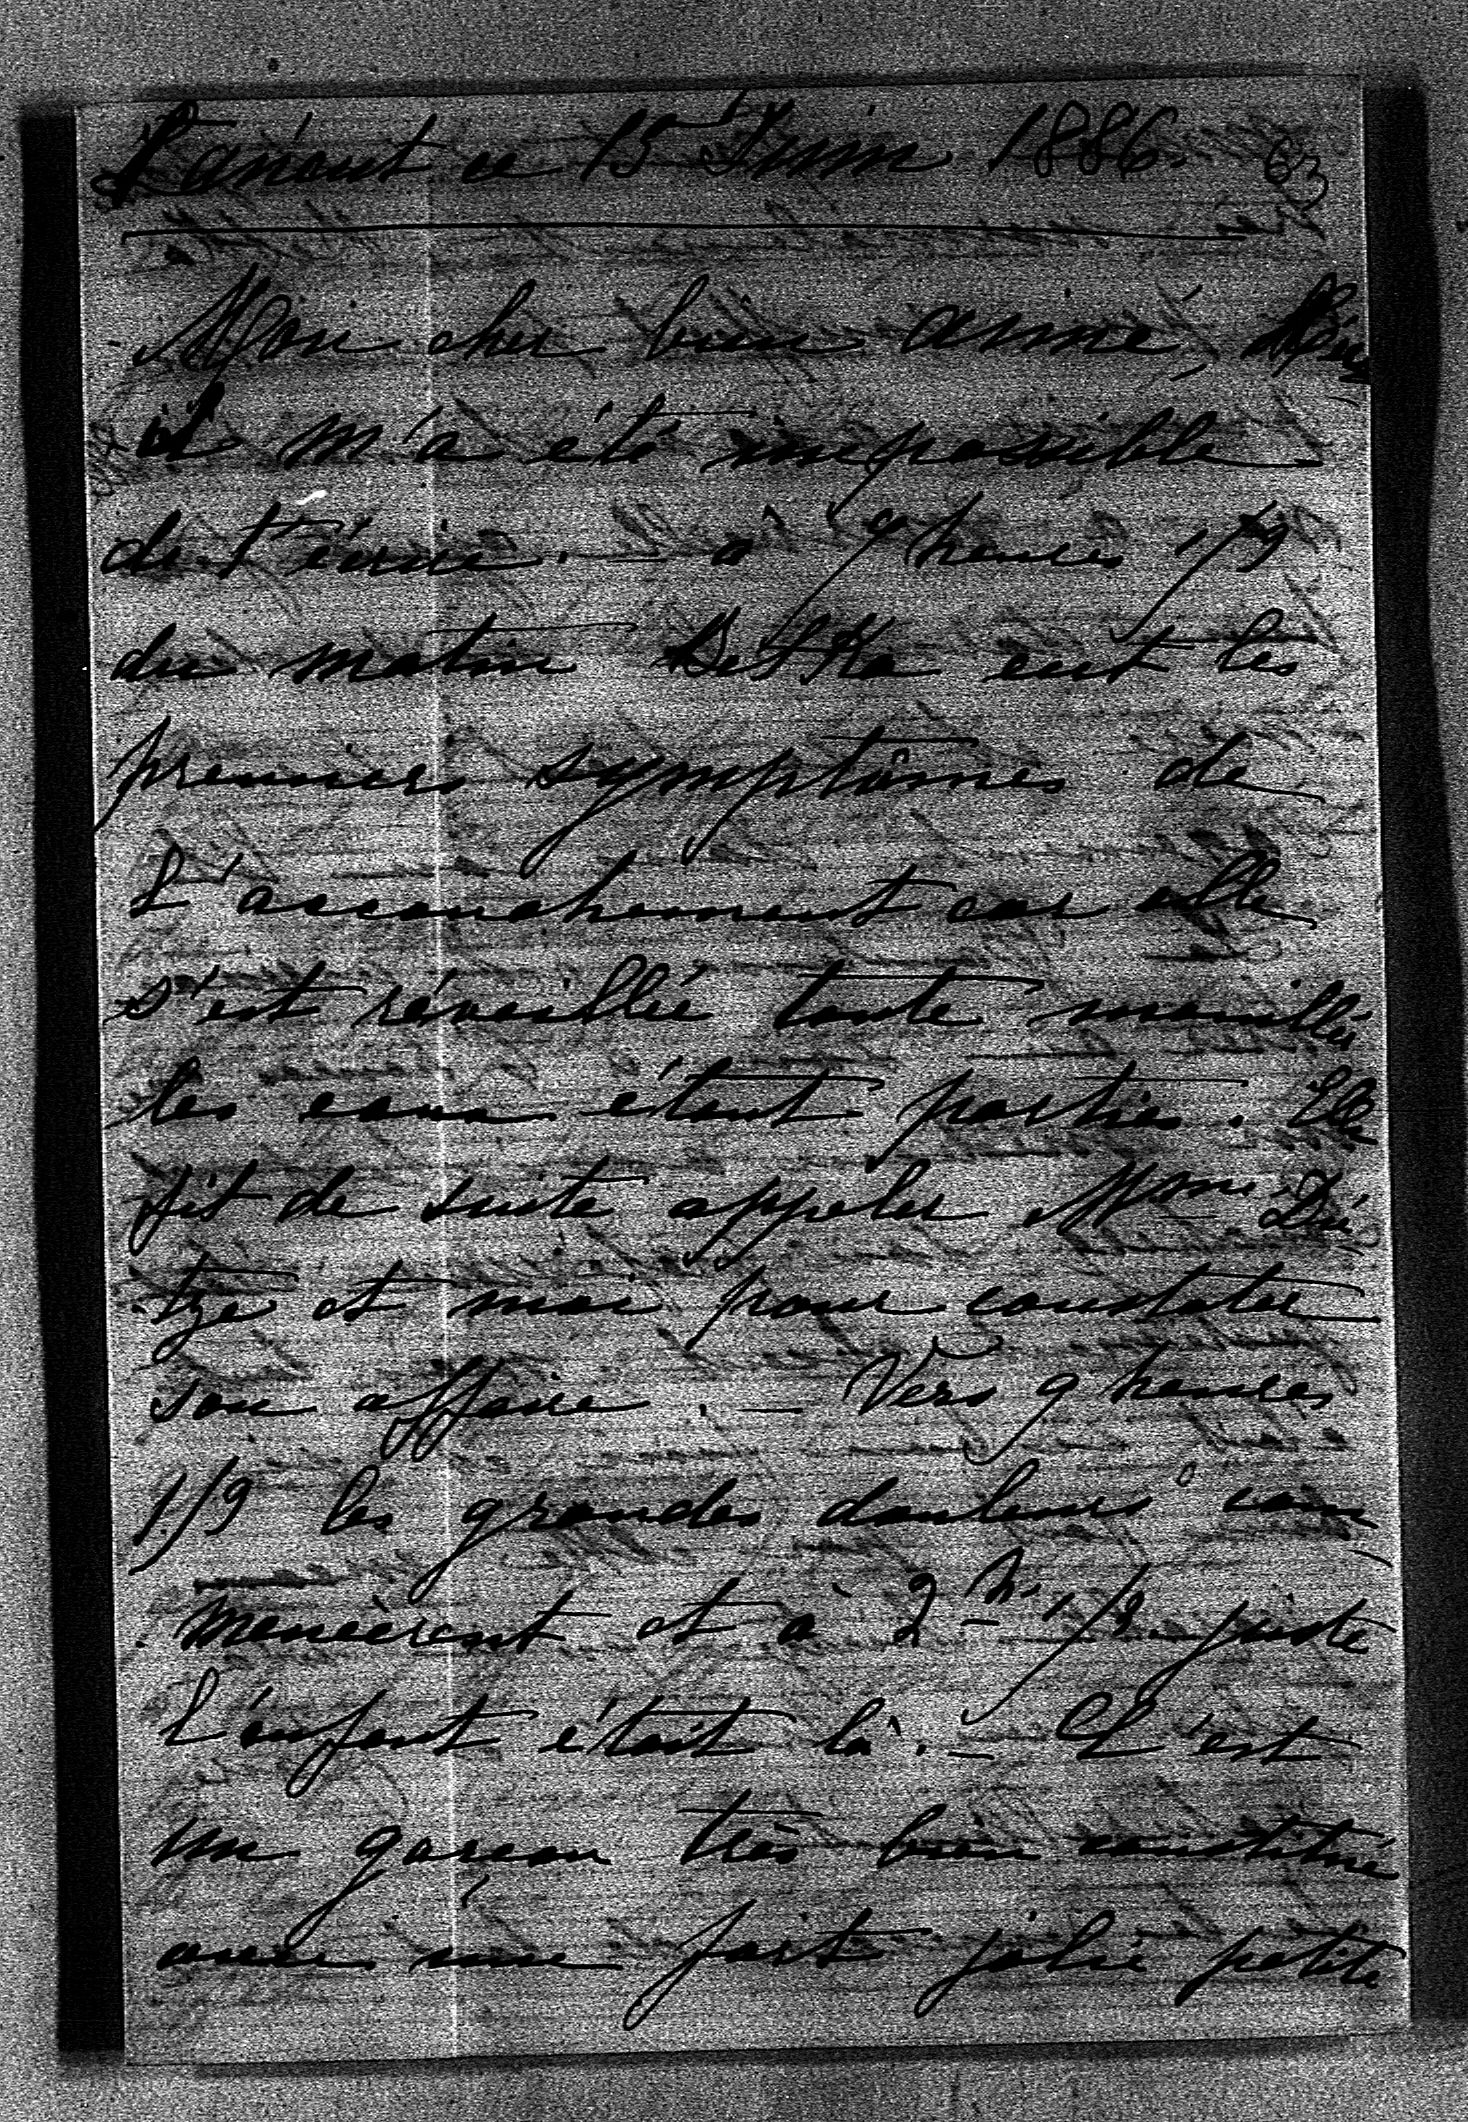 ce 15 Juin 1886. 63
Mon cher bien aimé,
il m'a été impossible
de t'écrire. — à 9 heures 1/2
du matin Detka eut les
premiers symptômes de
l'accouchement car elle
s'est réveillée toute mouillée
les eaux étant parties. Elle
fit de suite appeler Mme Dié
tze et moi pour constater
son affaire. — Vers 9 heures
1/2 les grandes douleurs com
mencèrent et à 2 h. 1/2 juste
l'enfant était là. — C'est
un garçon très bien constitué
avec une fort jolie petite